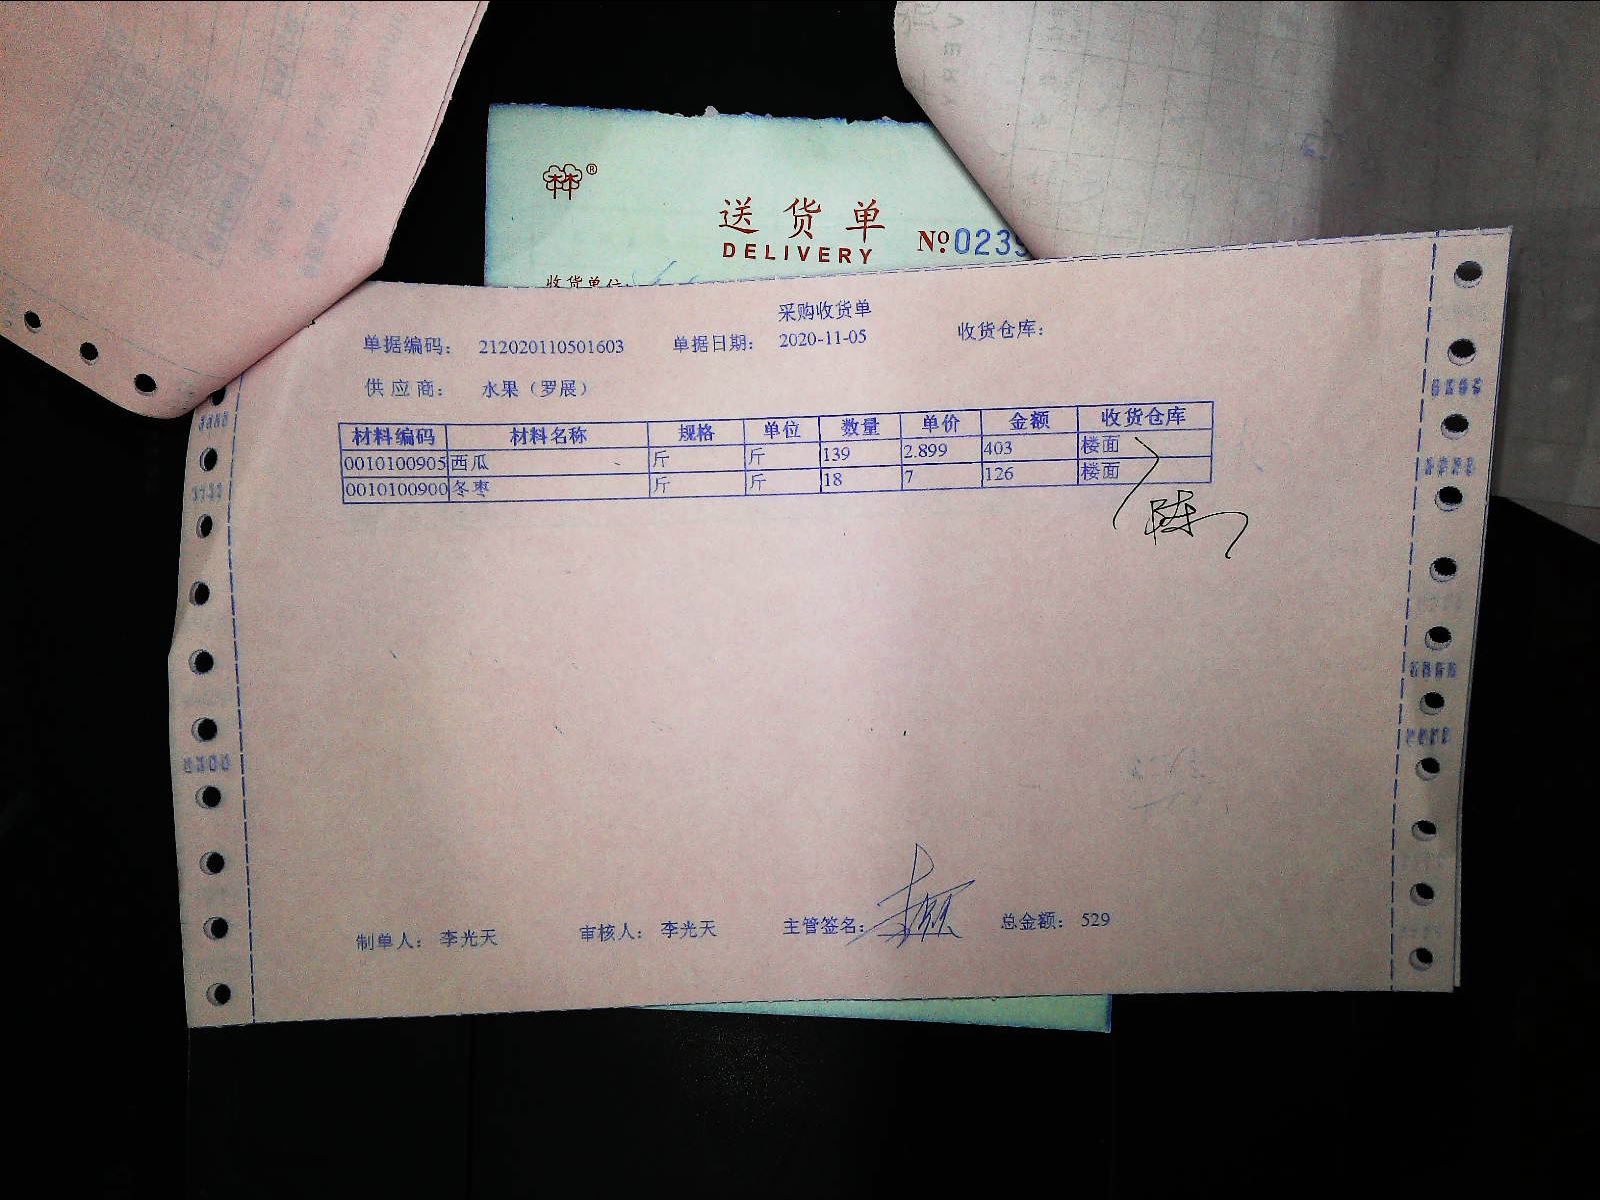 送货单
DELIVERY
№ 0239
收货单位:
采购收货单
单据编码： 212020110501603 单据日期： 2020-11-05 收货仓库：
供应商： 水果（罗展）
材料编码 材料名称 规格 单位 数量 单价 金额 收货仓库
0010100905 西瓜 斤 斤 139 2.899 403 楼面
0010100900 冬枣 斤 斤 18 7 126 楼面
制单人： 李光天 审核人： 李光天 主管签名： 总金额： 529